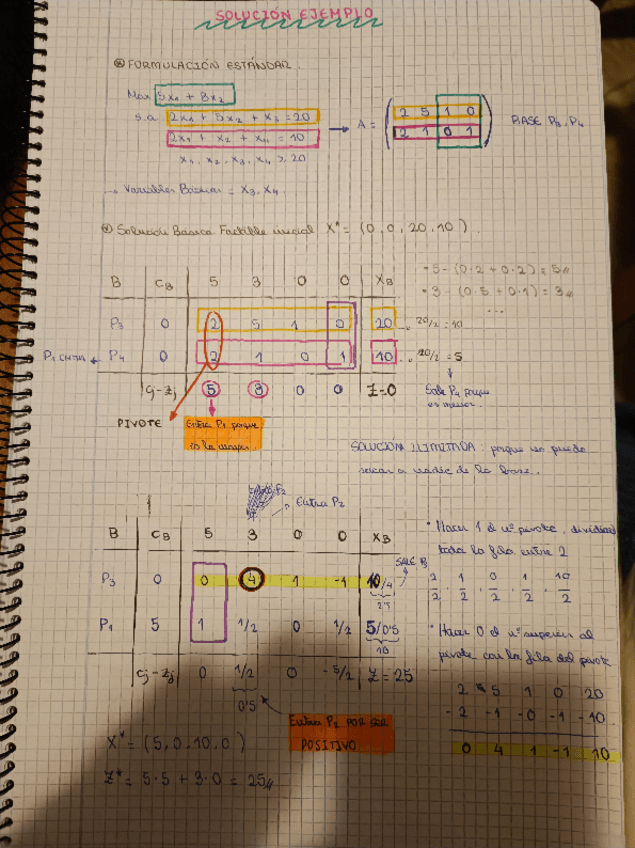 SOLUCIÓN EJEMPLO
FORMULACIÓN ESTÁNDAR.
Max 5x1 + 3x2
s.a 2x1 + 5x2 + x3 = 20
2x1 + x2 + x4 = 10
x1, x2, x3, x4 ≥ 20
→ A = ( 2 5 1 0
2 1 0 1 )
BASE P3, P4
→ Variables Básicas = x3, x4.
Solución Básica Factible inicial X* = (0, 0, 20, 10).
B CB 5 3 0 0 XB
P3 0 2 5 1 0 20 → 20/2 = 10
P1 entra ← P4 0 2 1 0 1 10 → 20/2 = 5
cj-zj 5 3 0 0 Z=0
- 5 - (0·2 + 0·2) = 5//
- 3 - (0·5 + 0·1) = 3//
...
Sale P4 porque
es menor.
PIVOTE
Entra P1 porque
es la mayor.
SOLUCIÓN ILIMITADA: porque no puedo
sacar a nadie de la base.
Entra P2
B CB 5 3 0 0 XB
P3 0 0 4 1 -1 10/4 SALE P3
2'5
P1 5 1 1/2 0 1/2 5/0'5
10
cj-zj 0 1/2 0 -5/2 Z = 25
0'5
Entra P2 POR SER
POSITIVO
X* = (5, 0, 10, 0)
Z* = 5·5 + 3·0 = 25//
* Hacer 1 el nº pivote, dividiendo
toda la fila entre 2
2/2, 1/2, 0/2, 1/2, 10/2
* Hacer 0 el nº superior al
pivote con la fila del pivote
2 5 1 0 20
-2 -1 -0 -1 -10
0 4 1 -1 10